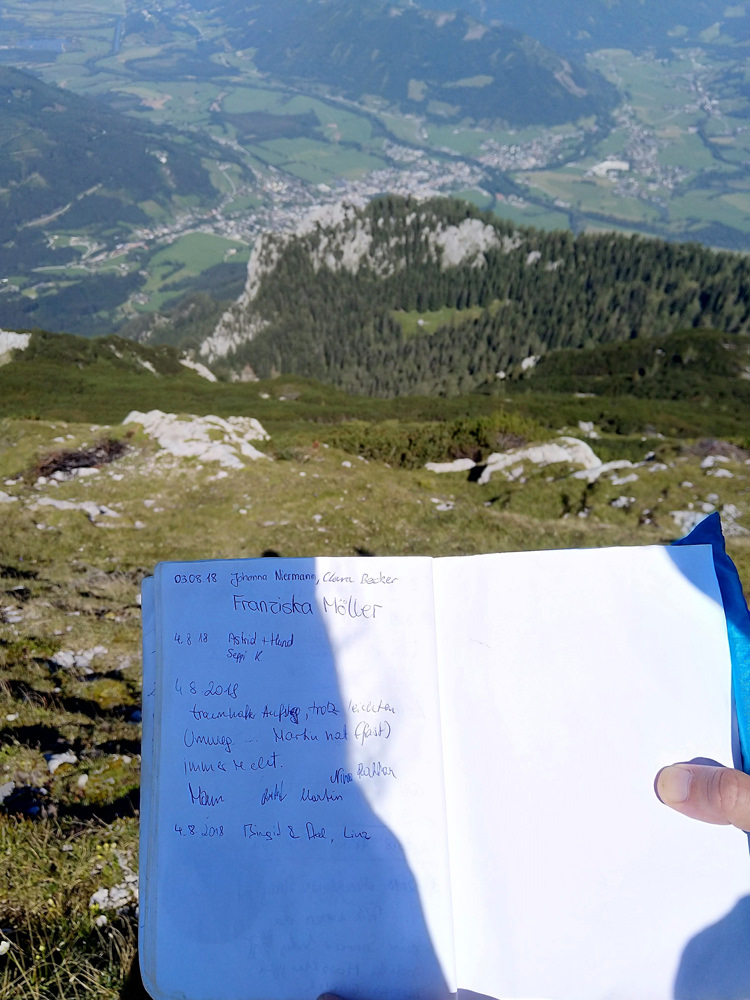 03.08.18 Johanna Niermann, Clara Becker
Franziska Möller
4.8.18 Astrid + Hund
Seppi K.
4.8.2018
traumhafter Aufstieg, trotz leichten
Umweg ... Martin hat (fast)
immer recht.
Nina
Martin
4.8.2018 Birgid & Axel, Linz